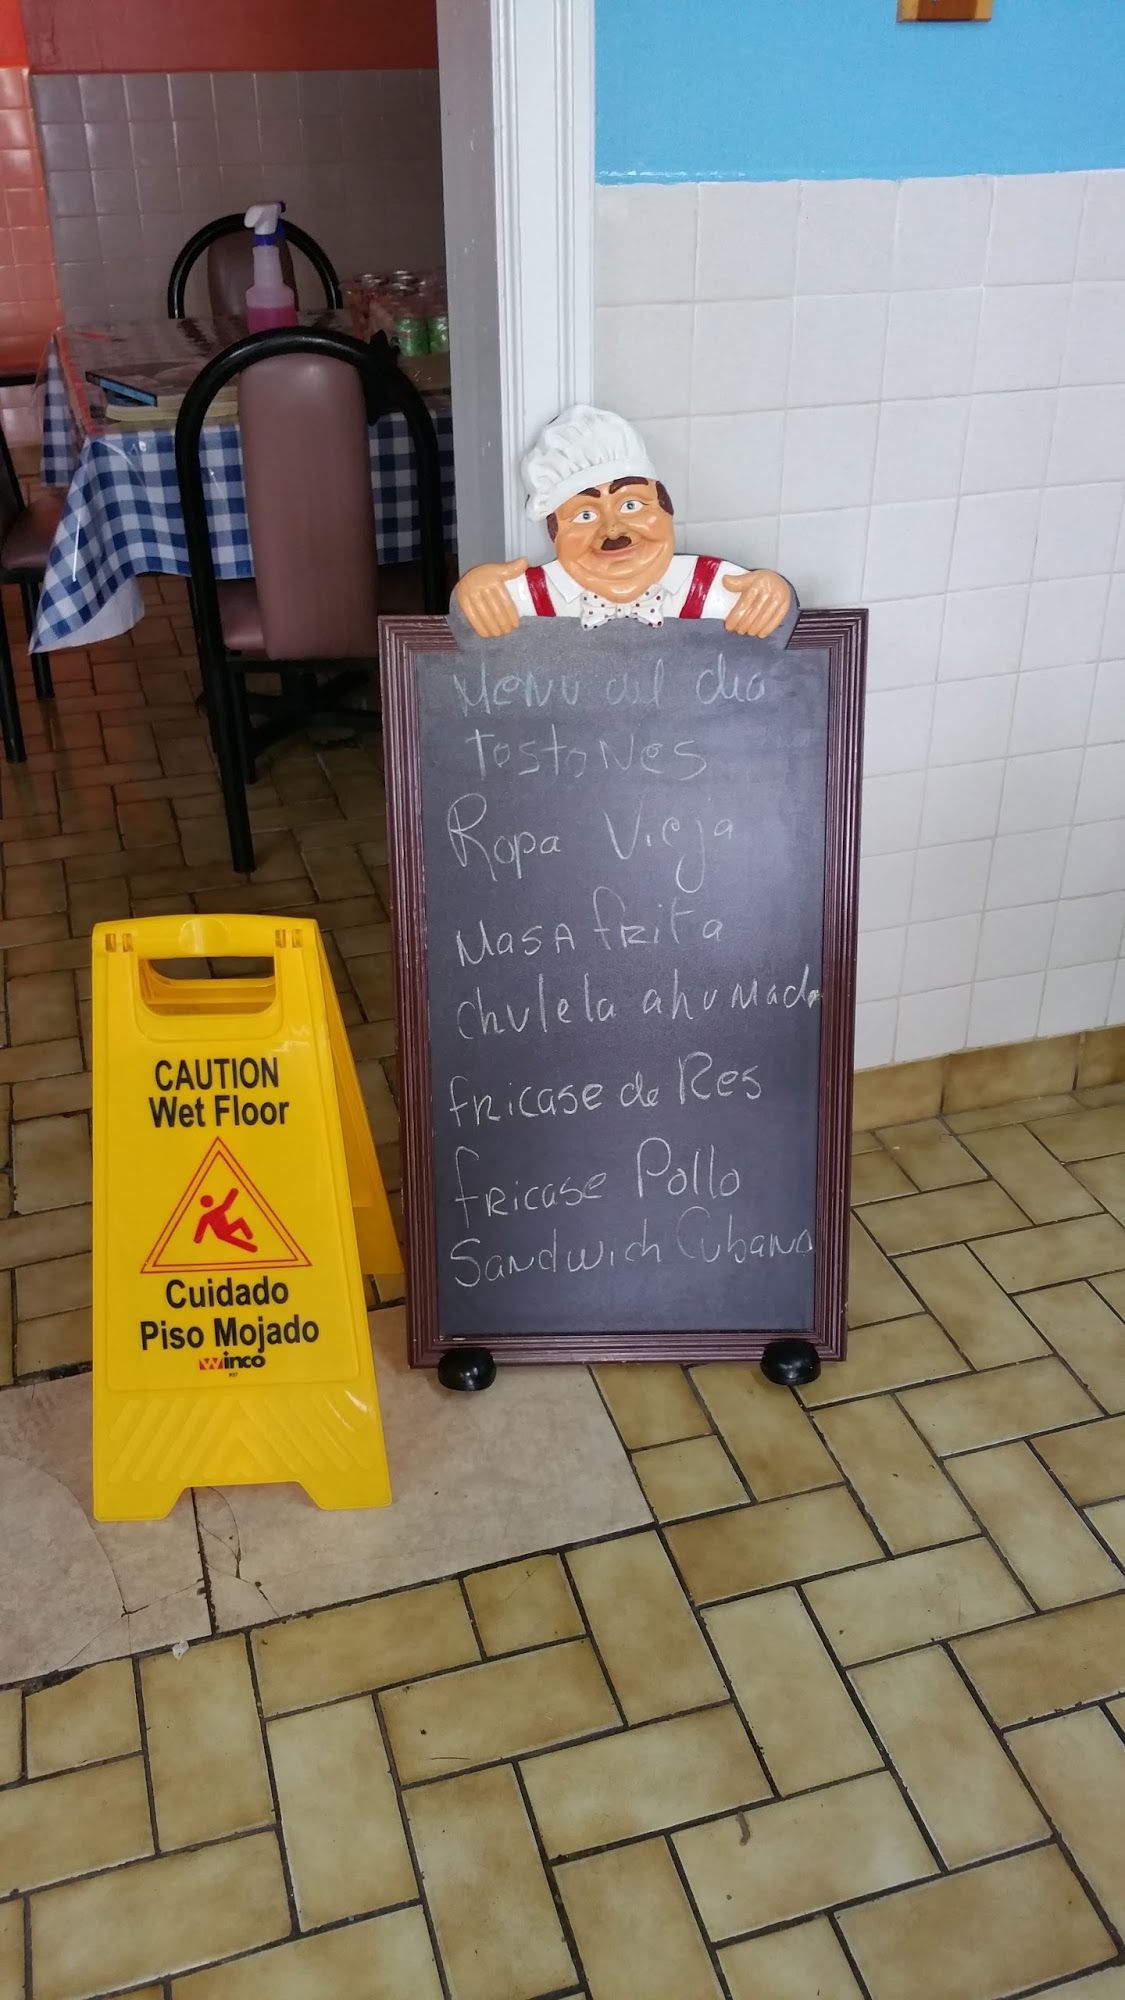 Menu del dia
Tostones
Ropa Vieja
Masa frita
chulela ahumada
fricase de Res
fricase Pollo
Sandwich Cubano
CAUTION
Wet Floor
Cuidado
Piso Mojado
Winco